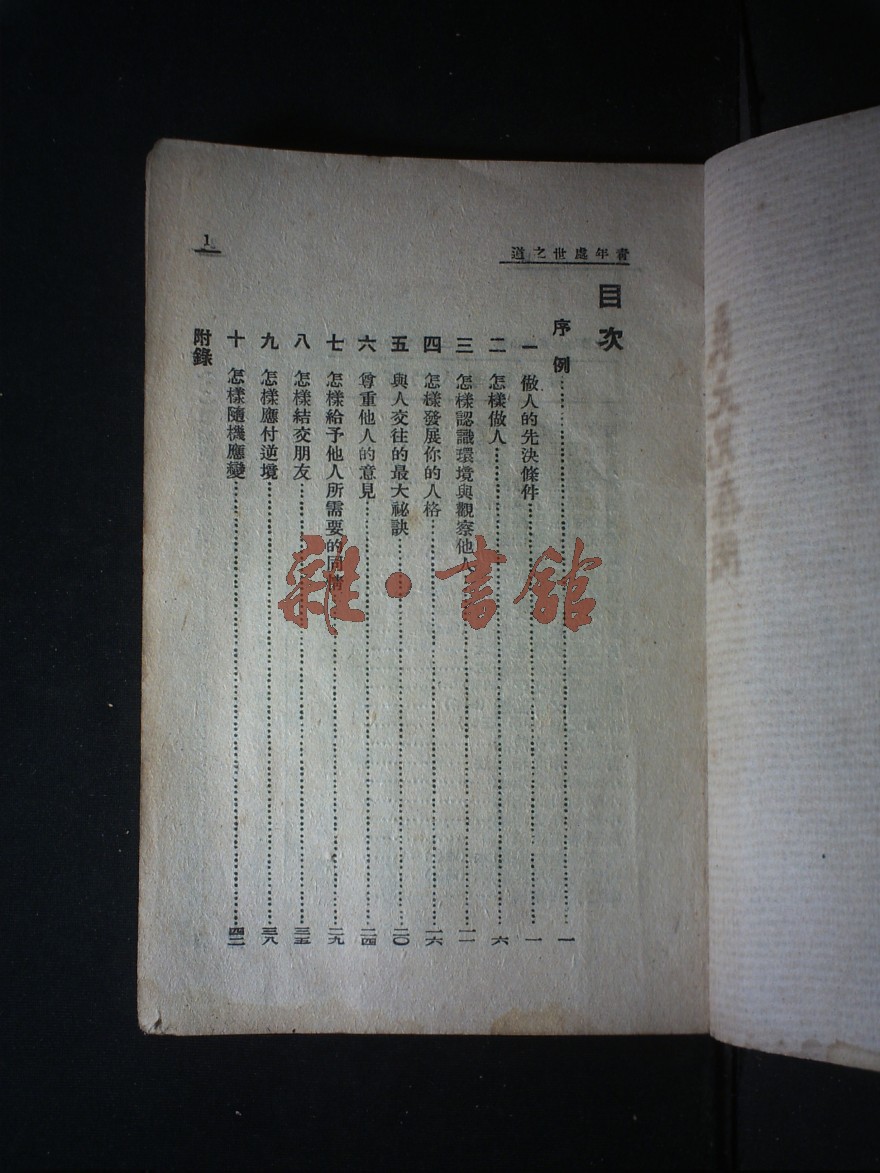 青年處世之道
目次
序例……一
一 做人的先決條件……一
二 怎樣做人……六
三 怎樣認識環境與觀察他人……一一
四 怎樣發展你的人格……一六
五 與人交往的最大祕訣……二〇
六 尊重他人的意見……二四
七 怎樣給予他人所需要的同情……二九
八 怎樣結交朋友……三五
九 怎樣應付逆境……三八
十 怎樣隨機應變……四二
附錄
1
雜·書館